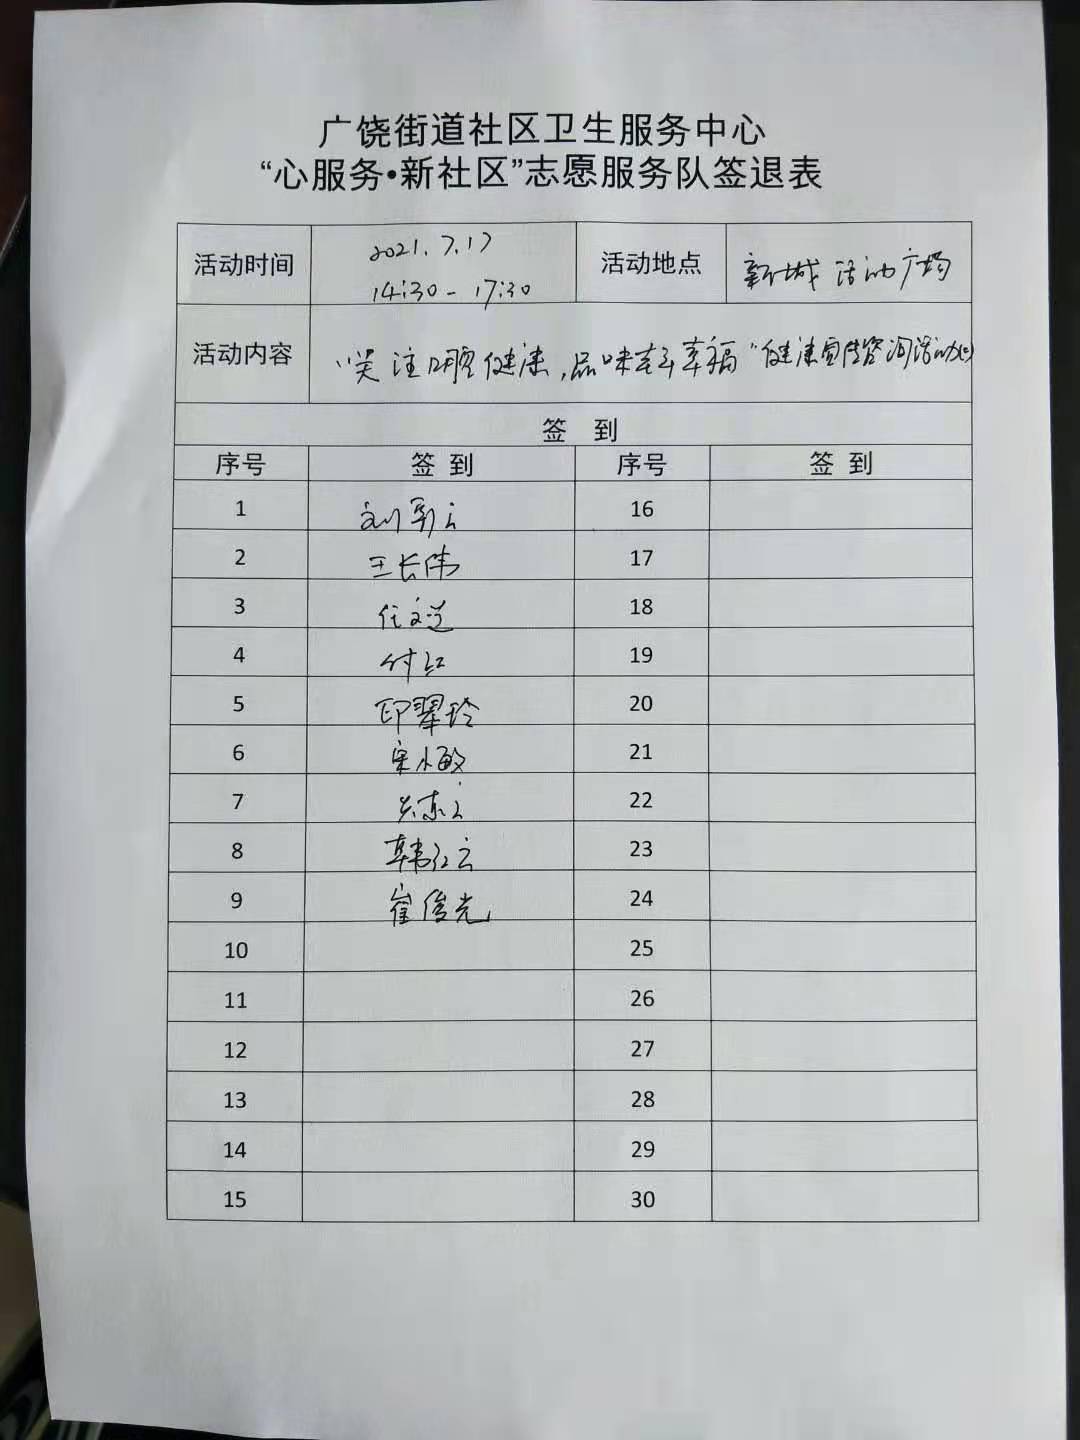 广饶街道社区卫生服务中心
“心服务•新社区”志愿服务队签退表
活动时间 2021.7.17 14:30-17:30 活动地点 新城活动广场
活动内容 “关注口腔健康,品味老年幸福”健康宣传咨询活动
签 到
序号 签 到 序号 签 到
1 16
2 王长伟 17
3 18
4 付红 19
5 印翠玲 20
6 宋小敏 21
7 22
8 韩红云 23
9 崔俊光 24
10 25
11 26
12 27
13 28
14 29
15 30